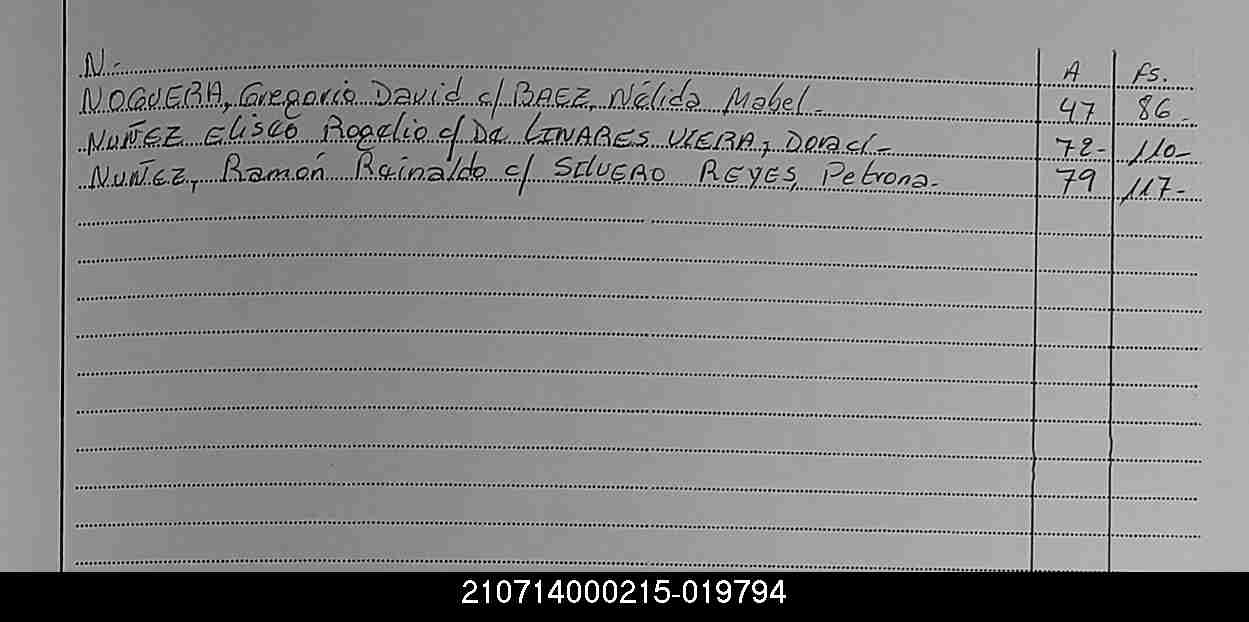 N.-
A Fs.
NOGUERA, Gregorio David c/ BAEZ, Nélida Mabel.- 47 86.-
NUÑEZ Eliseo Rogelio c/ De LINARES VIERA, Doraci.- 78- 110-
NUÑEZ, Ramón Reinaldo c/ SILVERO REYES, Petrona.- 79 117-
210714000215-019794